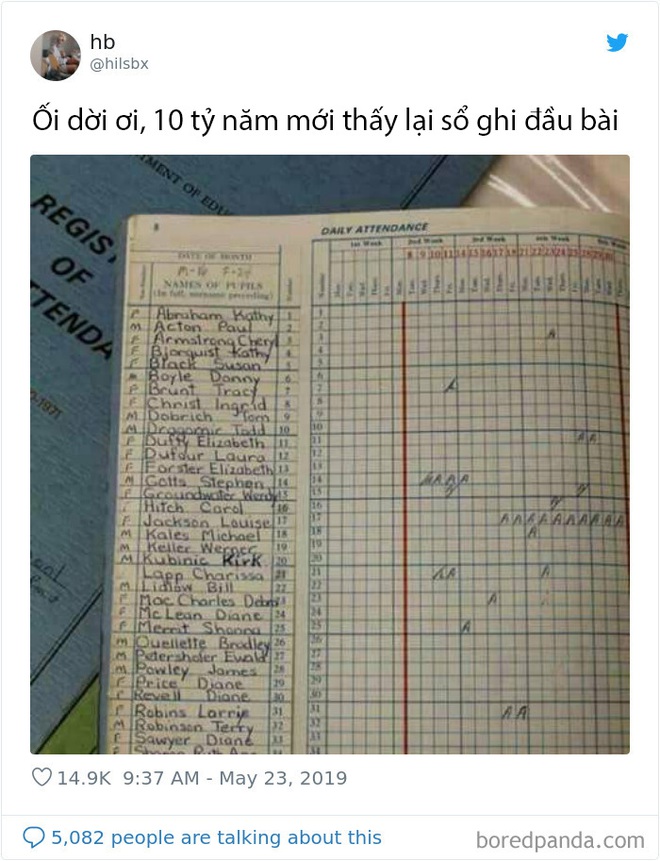 hb
@hilsbx
Ối dời ơi, 10 tỷ năm mới thấy lại sổ ghi đầu bài
REGIS
OF
TTENDA
TMENT OF EDU
-1971
8
DAILY ATTENDANCE
1st Week 2nd Week 3rd Week 4th Week
DATE OF MONTH
NAMES OF PUPILS
(In full, surname preceding)
F Abraham Kathy 1
M Acton Paul 2
F Armstrong Cheryl 3
F Bjorquist Kathy 4
F Black Susan 5
M Boyle Danny 6
F Brunt Tracy 7
F Christ Ingrid 8
M Dobrich Tom 9
M Dragomic Todd 10
F Duffy Elizabeth 11
F Dufour Laura 12
F Forster Elizabeth 13
M Gotts Stephen 14
F Groundwater Wendy 15
Hitch Carol 16
F Jackson Louise 17
M Kales Michael 18
M Keller Werner 19
M Kubinic Kirk 20
Lapp Charissa 21
M Lidlow Bill 22
F Mac Charles Debra 23
F McLean Diane 24
F Merrit Shonna 25
M Ouellette Bradley 26
M Petershofer Ewald 27
M Powley James 28
F Price Diane 29
F Revell Diane 30
F Robins Lorrie 31
M Robinson Terry 32
F Sawyer Diane 33
14.9K 9:37 AM - May 23, 2019
5,082 people are talking about this
boredpanda.com